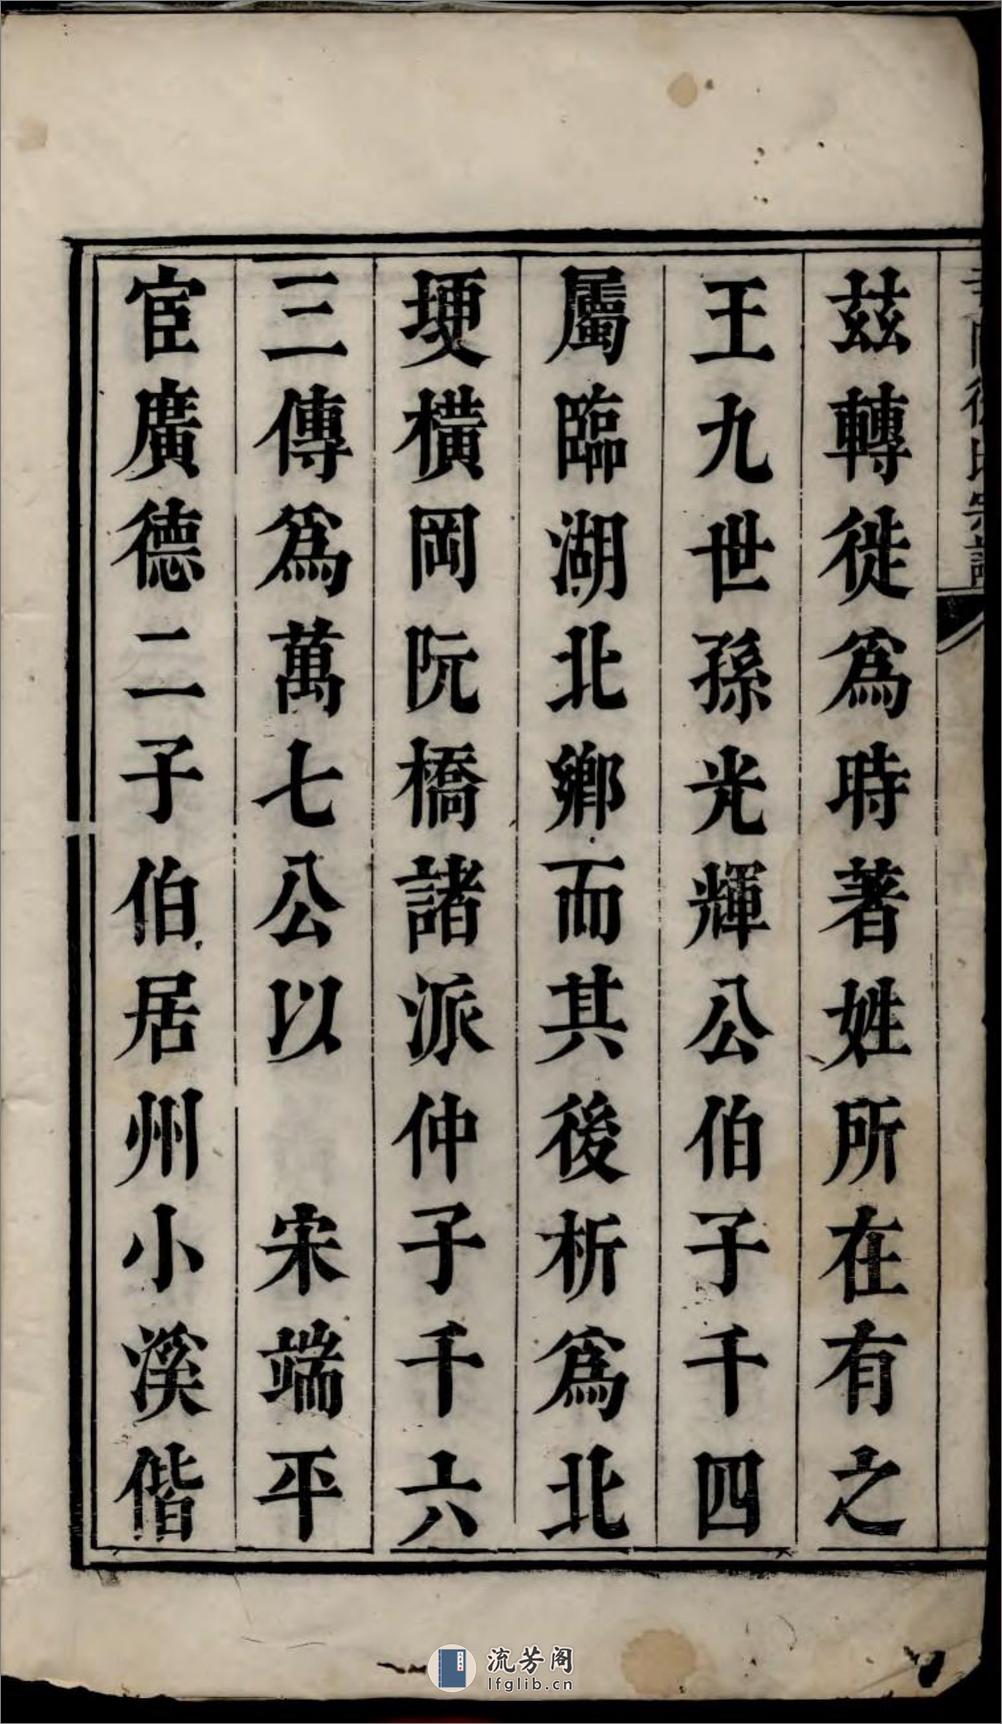 徐氏宗譜
兹轉徙爲時著姓所在有之
王九世孫光輝公伯子千四
屬臨湖北鄉而其後析爲北
埂橫岡阮橋諸派仲子千六
三傳爲萬七公以　宋端平
宦廣德二子伯居州小溪偕
流芳阁
lfglib.cn